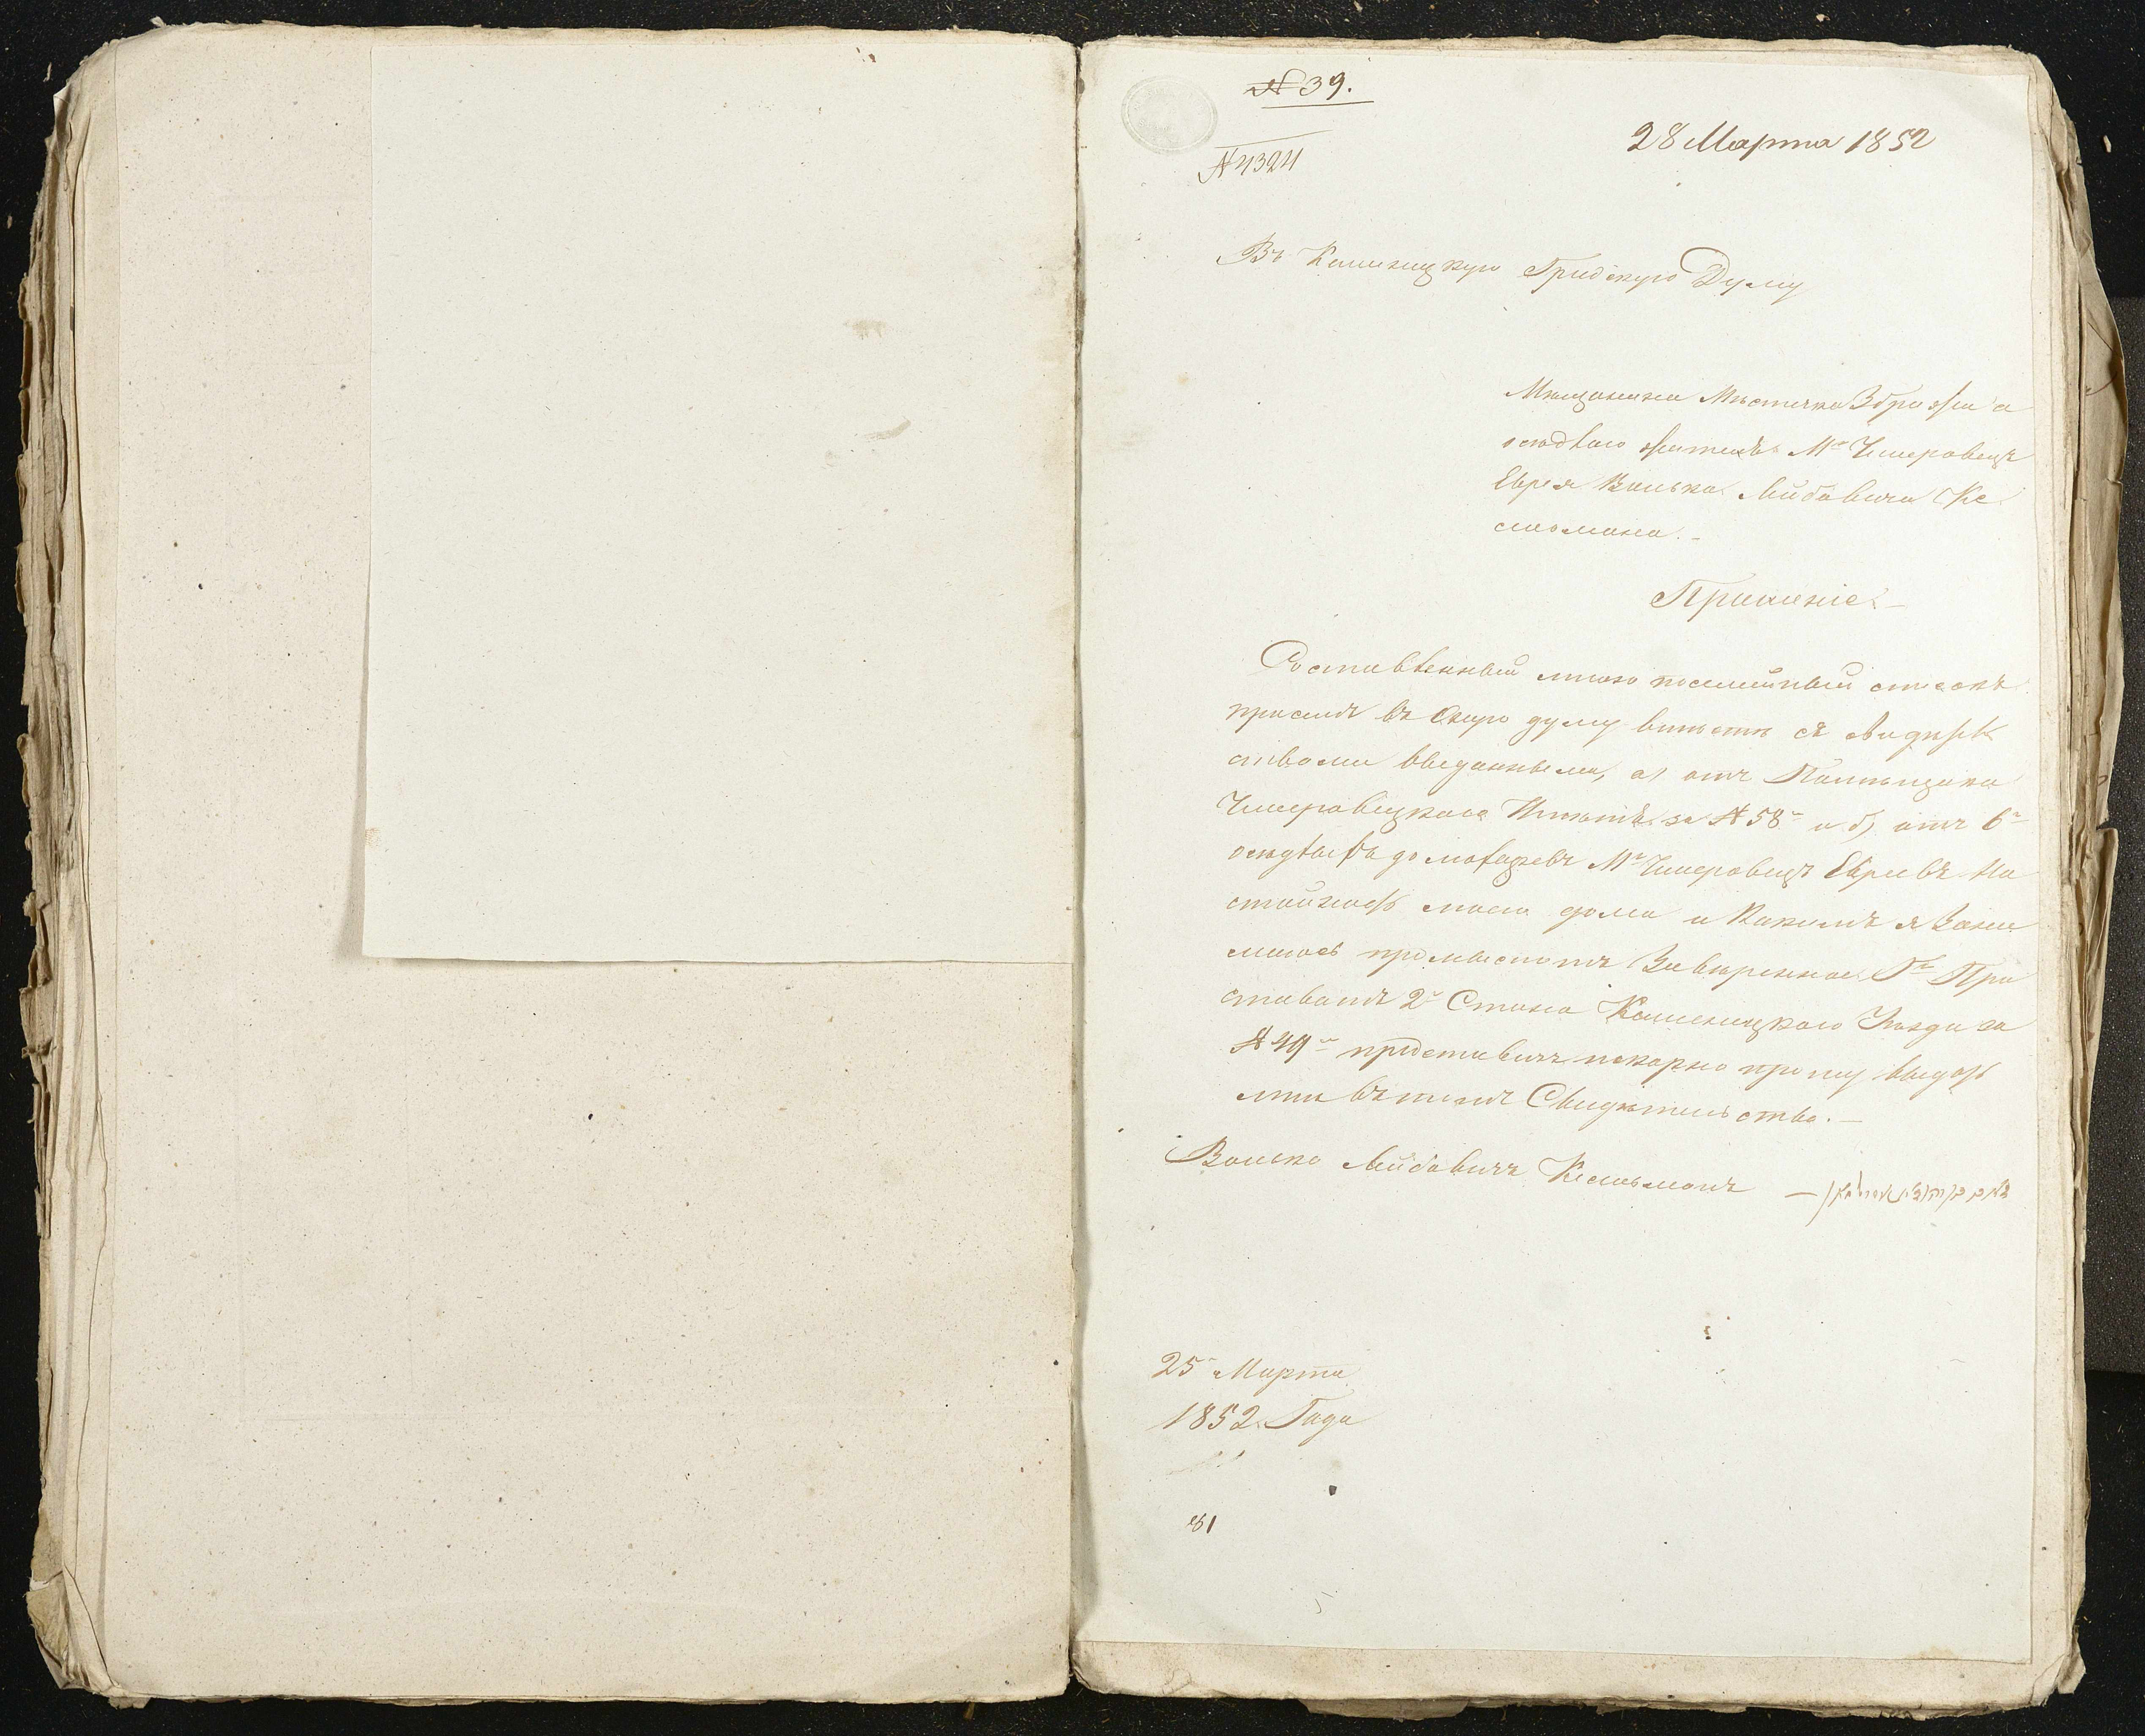 № 39.
28 Марта 1852
№ 4324
Въ Каменицкую Градскую Думу
Мещанина Местечка Збрижа а
оседлаго жителя Мка Чемеровецъ
Еврея Волька Лейбовича Ке
сельмана.
Прошение
Составленный мною посемейный списокъ
при семъ въ оную думу вместе съ свидетель
ствами выданными, а) отъ Помещика
Чемеровецкаго Имения за № 58м и б) отъ 6и
оседлыхъ домохозяевъ Мка Чемеровецъ Евреевъ На
стойность моего дома и Какимъ я Зани
маюсь промысломъ Заверенное Гм При
ставомъ 2го Стана Каменицкаго Уезда за
№ 49м представляя покорно прошу выдать
мне въ томъ Свидетельство.
Волько Лейбовичъ Кесельманъ
25 Марта
1852 Года